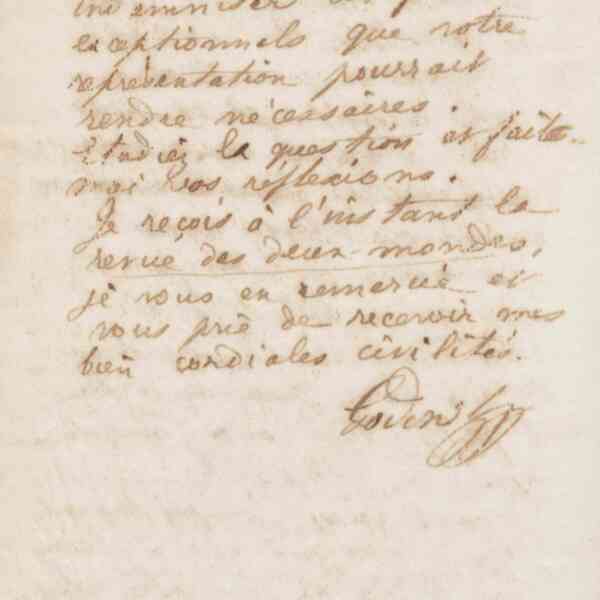 indemniser
exceptionnels que notre
représentation pourrait
rendre nécessaires.
Etudiez la question et faites
moi vos réflexions.
Je reçois à l'instant la
revue des deux-mondes,
je vous en remercie et
vous prie de recevoir mes
bien cordiales civilités.
Godin